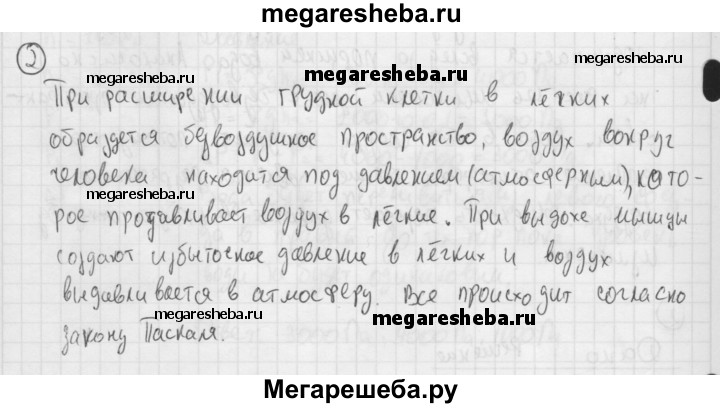 megaresheba.ru
2
megaresheba.ru megaresheba.ru
При расширении грудной клетки в лёгких
megaresheba.ru
образдется безвоздушное пространство, воздух вокруг
человека находится под давлением (атмосферным), кото-
megaresheba.ru
рое продавливает воздух в лёгкие. При выдохе мышцы
создают избыточное давление в лёгких и воздух
выдавливается в атмосферу. Все происходит согласно
megaresheba.ru megaresheba.ru
закону Паскаля.
Мегарешеба.ру